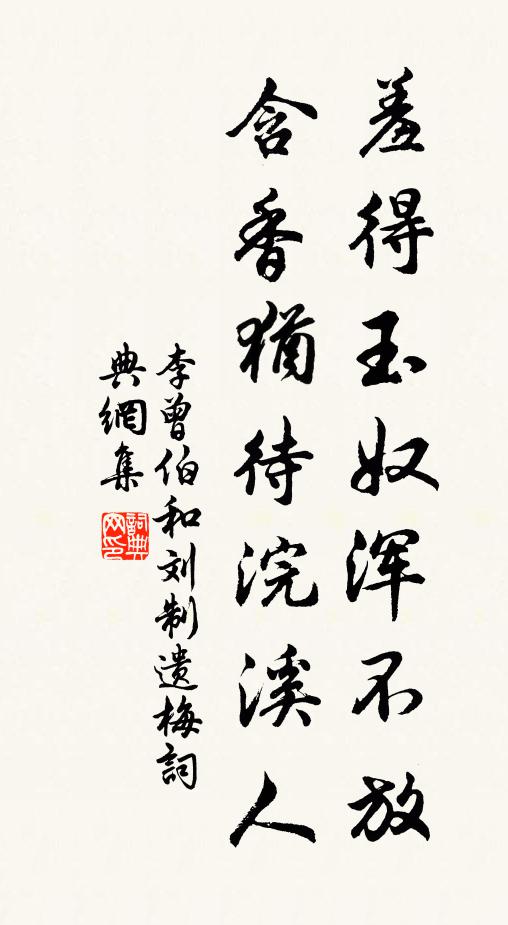 羞得玉奴浑不放
含香猶待浣溪人
李曾伯和刘制遗梅詞
典網集
詞典网印